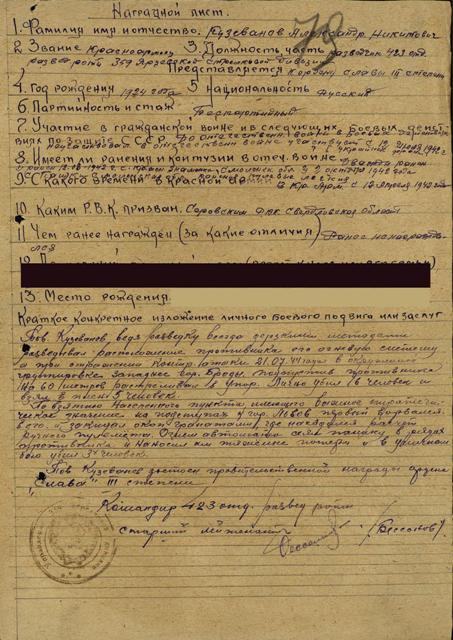 Наградной лист.
78
1. Фамилия имя и отчество. Кузеванов Александр Никитович
2 Звание Красноармеец 3. Должность, часть разведчик 423 отд.
развед роты 359 Ярцевской стрелковой дивизии
Представляется к ордену Славы III степени
4. Год рождения 1924 года 5 национальность Русский
6. Партийность и стаж Беспартийный
7. Участие в гражданской войне и в следующих боевых действ
иях по защите СССР
8. Имеет ли ранения и контузии в отеч. войне Дважды ранен
9. С какого времени в Красной Ар
в Кр. Арм. с 18 апреля 1942 года
10. Каким Р.В.К. призван. Серовским РВК Свердловской области
11. Чем ранее награжден (за какие отличия) Ранее не награжда-
лся
13. Место рождения.
Краткое конкретное изложение личного боевого подвига или заслуг
Тов Кузеванов, ведя разведку всегда дерзкими методами
разведывал расположение противника его огневую систему
а при отражении контр атаки 21.07.44 года в окружении
группировки Западнее гор. Броды, подпустив противника
на 60 метров расстреливал в упор. Лично убил 16 человек и
взял в плен 5 человек.
По взятию населенного пункта имеющего важное стратеги-
ческое значение на подступах к гор. Львов первый ворвался
в него и закидал окоп гранатами, где находился расчет
ручного пулемета. Огнем автомата сеял панику в рядах
противника и наносил им тяжелые потери и в уличном
бою убил 34 человек.
Тов Кузеванов достоен правительственной награды ордена
"Слава" III степени
Командир 423 отд. развед роты
старший лейтенант (Бессонов)